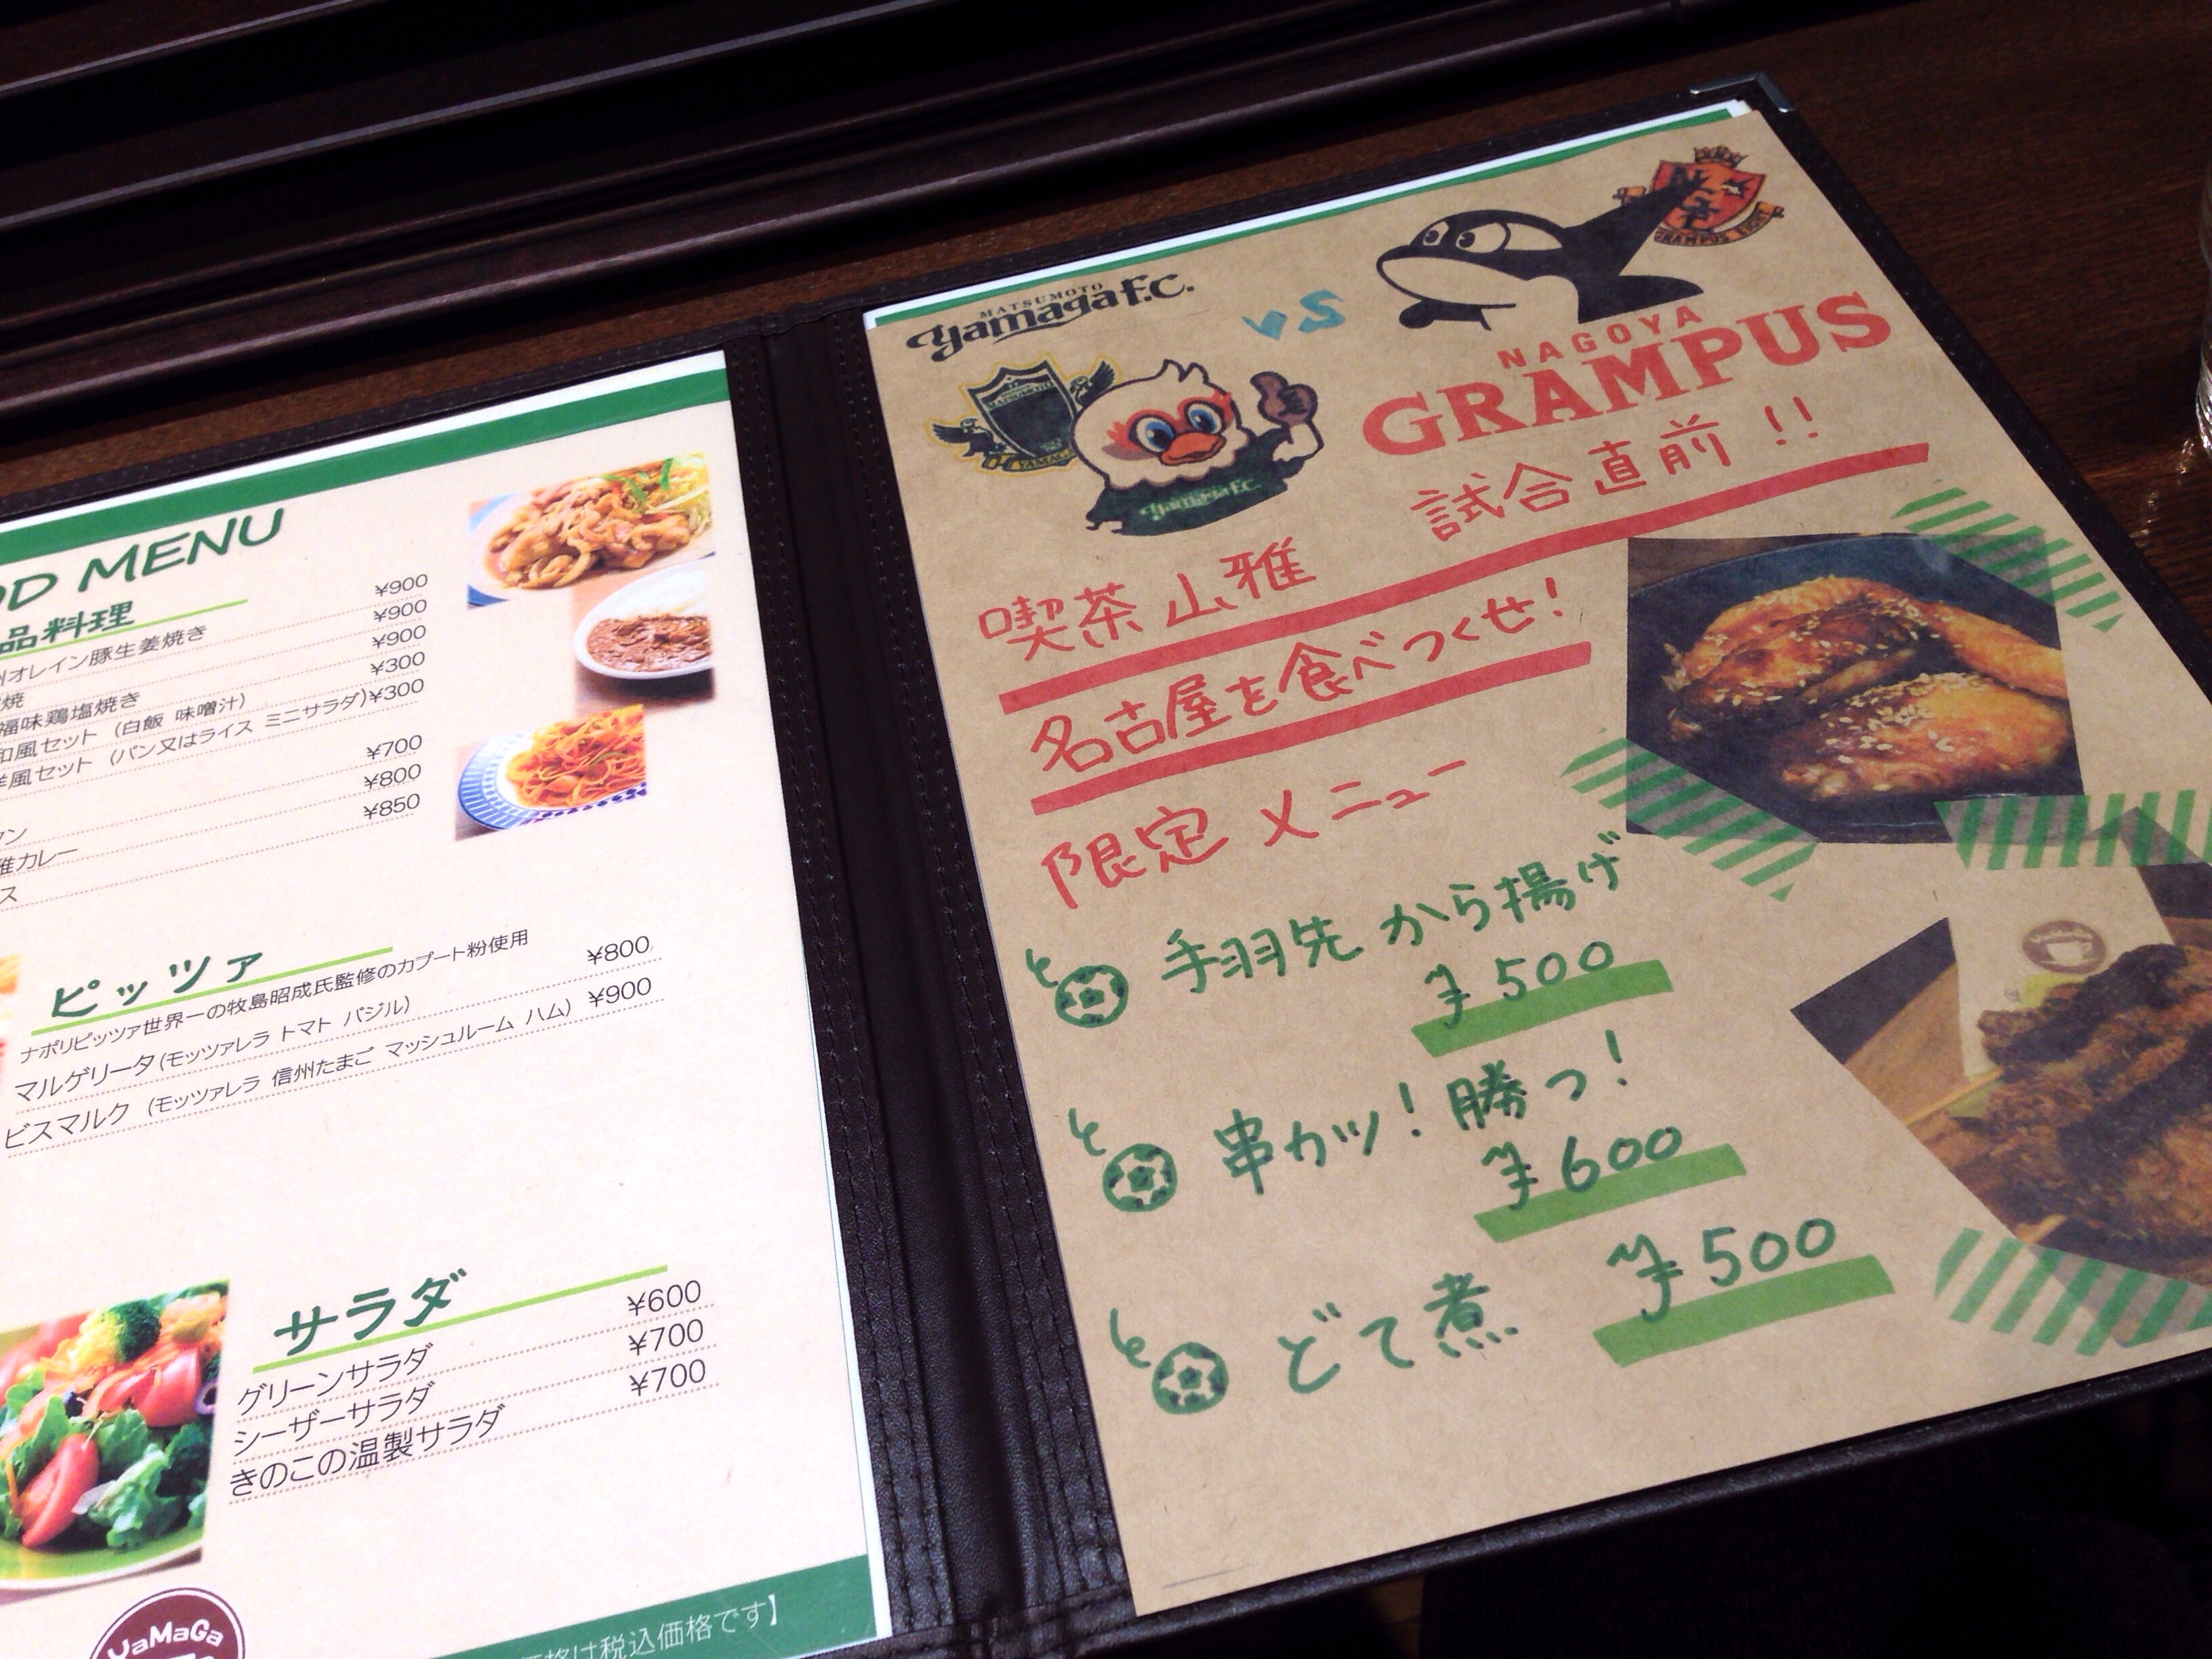 OD MENU
品料理
オレイン豚生姜焼き ¥900
焼 ¥900
福味鶏塩焼き ¥900
和風セット (白飯 味噌汁) ¥300
洋風セット (パン又はライス ミニサラダ) ¥300
¥700
雅カレー ¥800
ス ¥850
ピッツァ
ナポリピッツァ世界一の牧島昭成氏監修のカプート粉使用
マルゲリータ(モッツァレラ トマト バジル) ¥800
ビスマルク (モッツァレラ 信州たまご マッシュルーム ハム) ¥900
サラダ
グリーンサラダ ¥600
シーザーサラダ ¥700
きのこの温製サラダ ¥700
YaMaGa
価格は税込価格です】
MATSUMOTO
yamaga F.C.
vs
GRAMPUS EIGHT
NAGOYA
GRAMPUS
MATSUMOTO
YAMAGA
yamaga F.C.
試合直前!!
喫茶山雅
名古屋を食べつくせ!
限定メニュー
手羽先から揚げ
¥500
串カツ!勝つ!
¥600
どて煮 ¥500